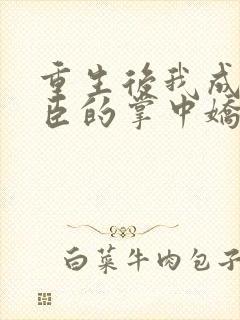 重生後我成
臣的掌中嬌
白菜牛肉包子